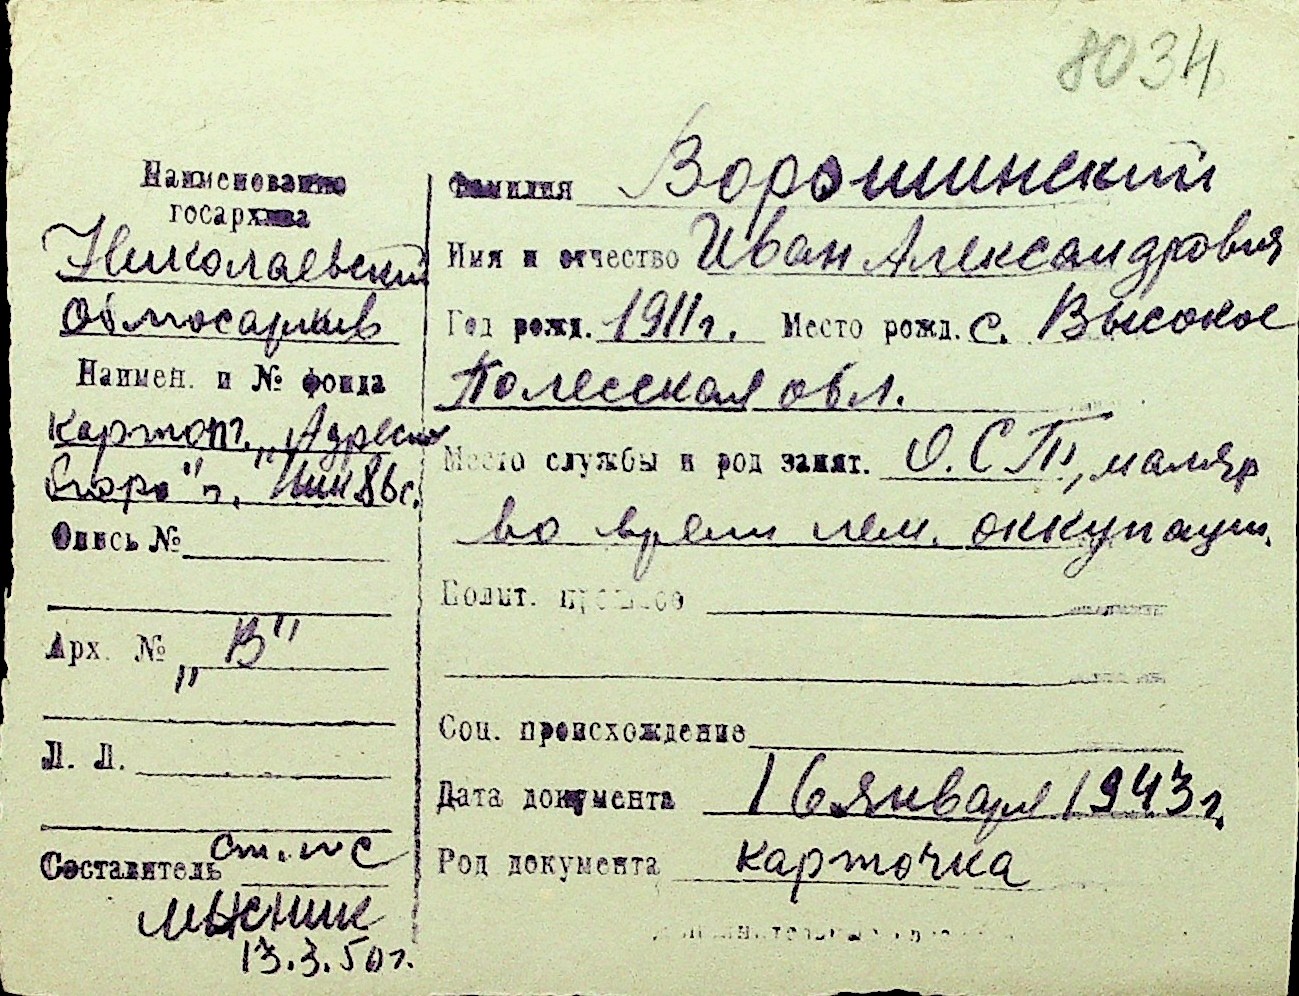 8034
Наименование
госархива
Николаевский
Облгосархив
Наимен. и № фонда
картот. „Адресн
бюро" г.
Опись №
Арх. № „В"
Л. Л.
Составитель ст. н/с
13.3.50г.
Фамилия Ворошинский
Имя и отчество Иван Александрович
Год рожд. 1911г. Место рожд. с. Высокое
Полесская обл.
Место службы и род занят. О.С.Т., маляр
во время нем. оккупации.
Полит. прошлое
Соц. происхождение
Дата документа 16 января 1943г.
Род документа карточка